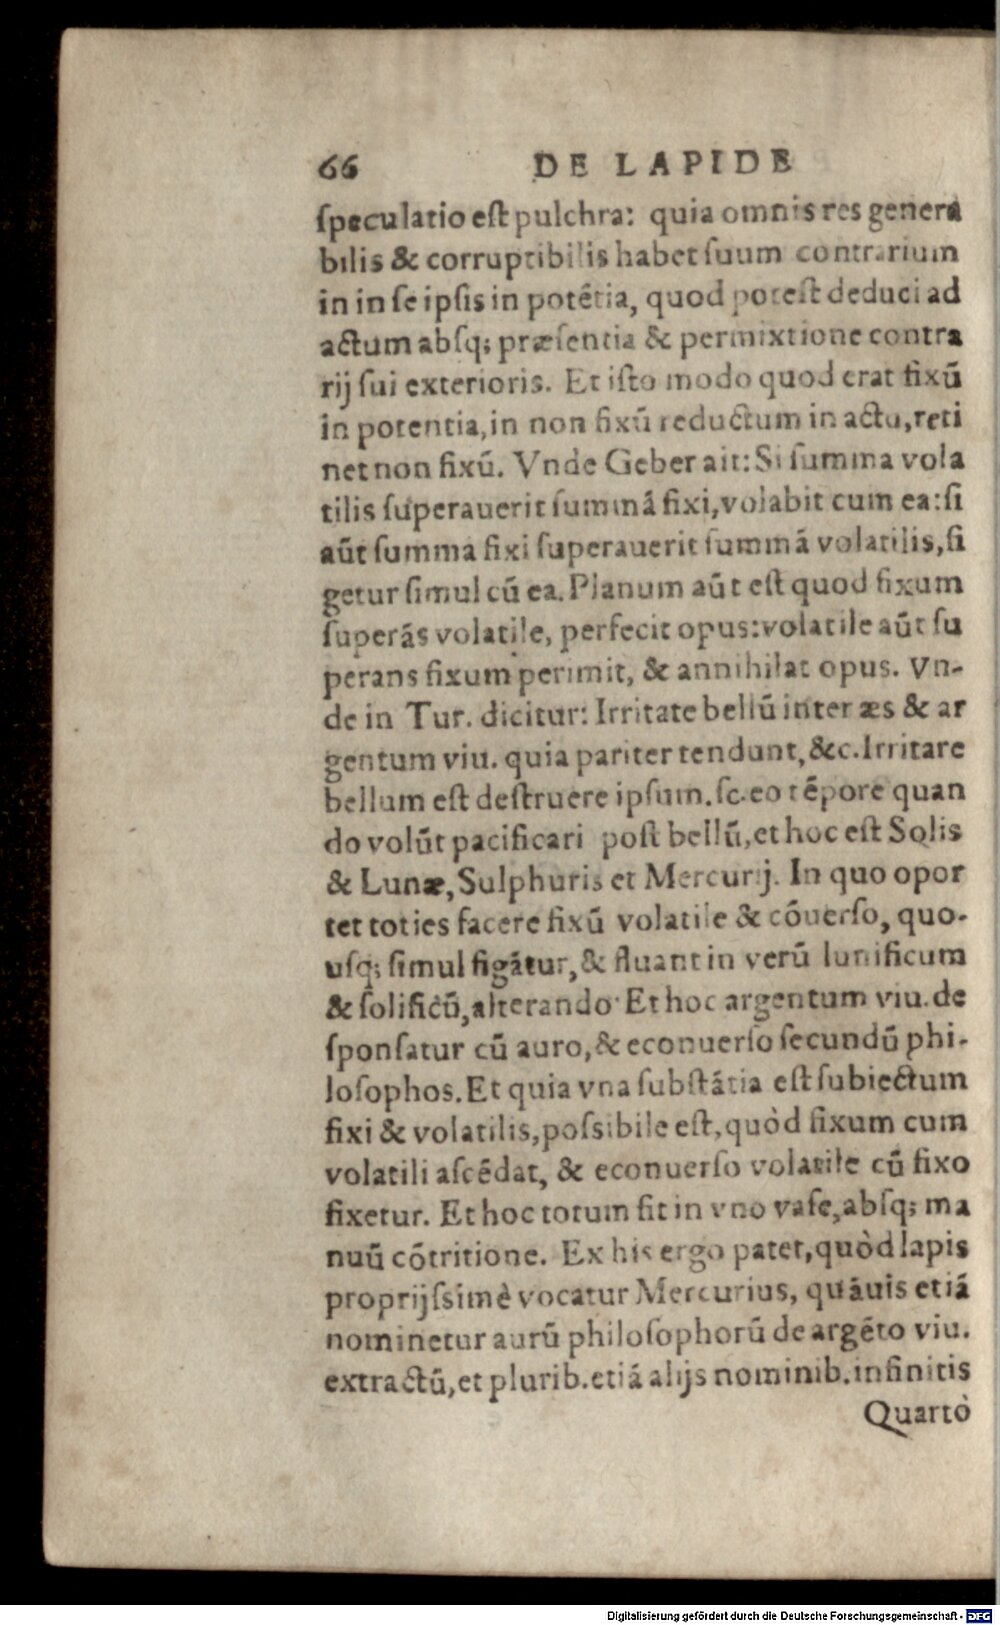 66 DE LAPIDE
ſpeculatio eſt pulchra: quia omnis res genera
bilis & corruptibilis habet ſuum contrarium
in in ſe ipſis in potẽtia, quod poteſt deduci ad
actum abſq; præſentia & permixtione contra
rij ſui exterioris. Et iſto modo quod erat fixũ
in potentia, in non fixũ reductum in actu, reti
net non fixũ. Vnde Geber ait: Si ſumma vola
tilis ſuperauerit ſummã fixi, volabit cum ea: ſi
aũt ſumma fixi ſuperauerit ſummã volatilis, fi
getur ſimul cũ ea. Planum aũt eſt quod fixum
ſuperãs volatile, perfecit opus: volatile aũt ſu
perans fixum perimit, & annihilat opus. Vn-
de in Tur. dicitur: Irritate bellũ inter æs & ar
gentum viu. quia pariter tendunt, &c. Irritare
bellum eſt deſtruere ipſum. ſc. eo tẽpore quan
do volũt pacificari poſt bellũ, et hoc eſt Solis
& Lunæ, Sulphuris et Mercurij. In quo opor
tet toties facere fixũ volatile & cõuerſo, quo-
uſq; ſimul figãtur, & fluant in verũ lunificum
& ſolificũ, alterando. Et hoc argentum viu. de
ſponſatur cũ auro, & econuerſo ſecundũ phi-
loſophos. Et quia vna ſubſtãtia eſt ſubiectum
fixi & volatilis, poſsibile eſt, quòd fixum cum
volatili aſcẽdat, & econuerſo volatile cũ fixo
fixetur. Et hoc totum fit in vno vaſe, abſq; ma
nuũ cõtritione. Ex his ergo patet, quòd lapis
proprijſsimè vocatur Mercurius, quãuis etiã
nominetur aurũ philoſophorũ de argẽto viu.
extractũ, et plurib. etiã alijs nominib. infinitis
Quartò
Digitalisierung gefördert durch die Deutsche Forschungsgemeinschaft - DFG